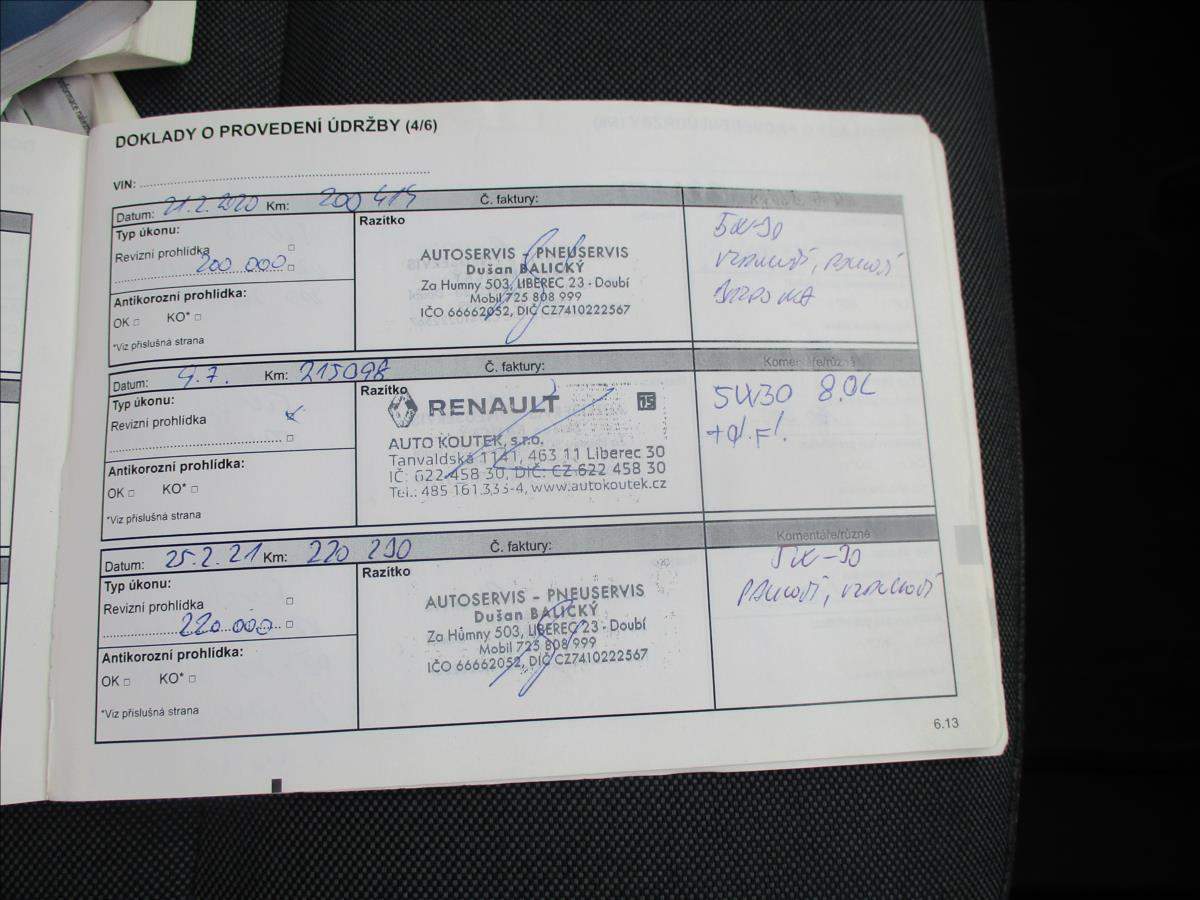 DOKLADY O PROVEDENÍ ÚDRŽBY (4/6)
VIN:
Datum: 21.2.2020 Km: 200 419 Č. faktury:
Typ úkonu:
Revizní prohlídka
200 000
Antikorozní prohlídka:
OK □ KO* □
*Viz příslušná strana
Razítko
AUTOSERVIS - PNEUSERVIS
Dušan BALICKÝ
Za Humny 503, LIBEREC 23 - Doubí
Mobil 725 808 999
IČO 66662052, DIČ CZ7410222567
5W-30
Datum: 9.7. Km: 215098 Č. faktury: Komentáře/různé
Typ úkonu:
Revizní prohlídka
Antikorozní prohlídka:
OK □ KO* □
*Viz příslušná strana
Razítko
RENAULT
AUTO KOUTEK, s.r.o.
Tanvaldská 1141, 463 11 Liberec 30
IČ: 622 458 30, DIČ: CZ 622 458 30
Tel.: 485 161 333-4, www.autokoutek.cz
5W30 8.0L
Datum: 25.2.21 Km: 220 290 Č. faktury: Komentáře/různé
Typ úkonu:
Revizní prohlídka
220 000
Antikorozní prohlídka:
OK □ KO* □
*Viz příslušná strana
Razítko
AUTOSERVIS - PNEUSERVIS
Dušan BALICKÝ
Za Humny 503, LIBEREC 23 - Doubí
Mobil 725 808 999
IČO 66662052, DIČ CZ7410222567
5W-30
6.13